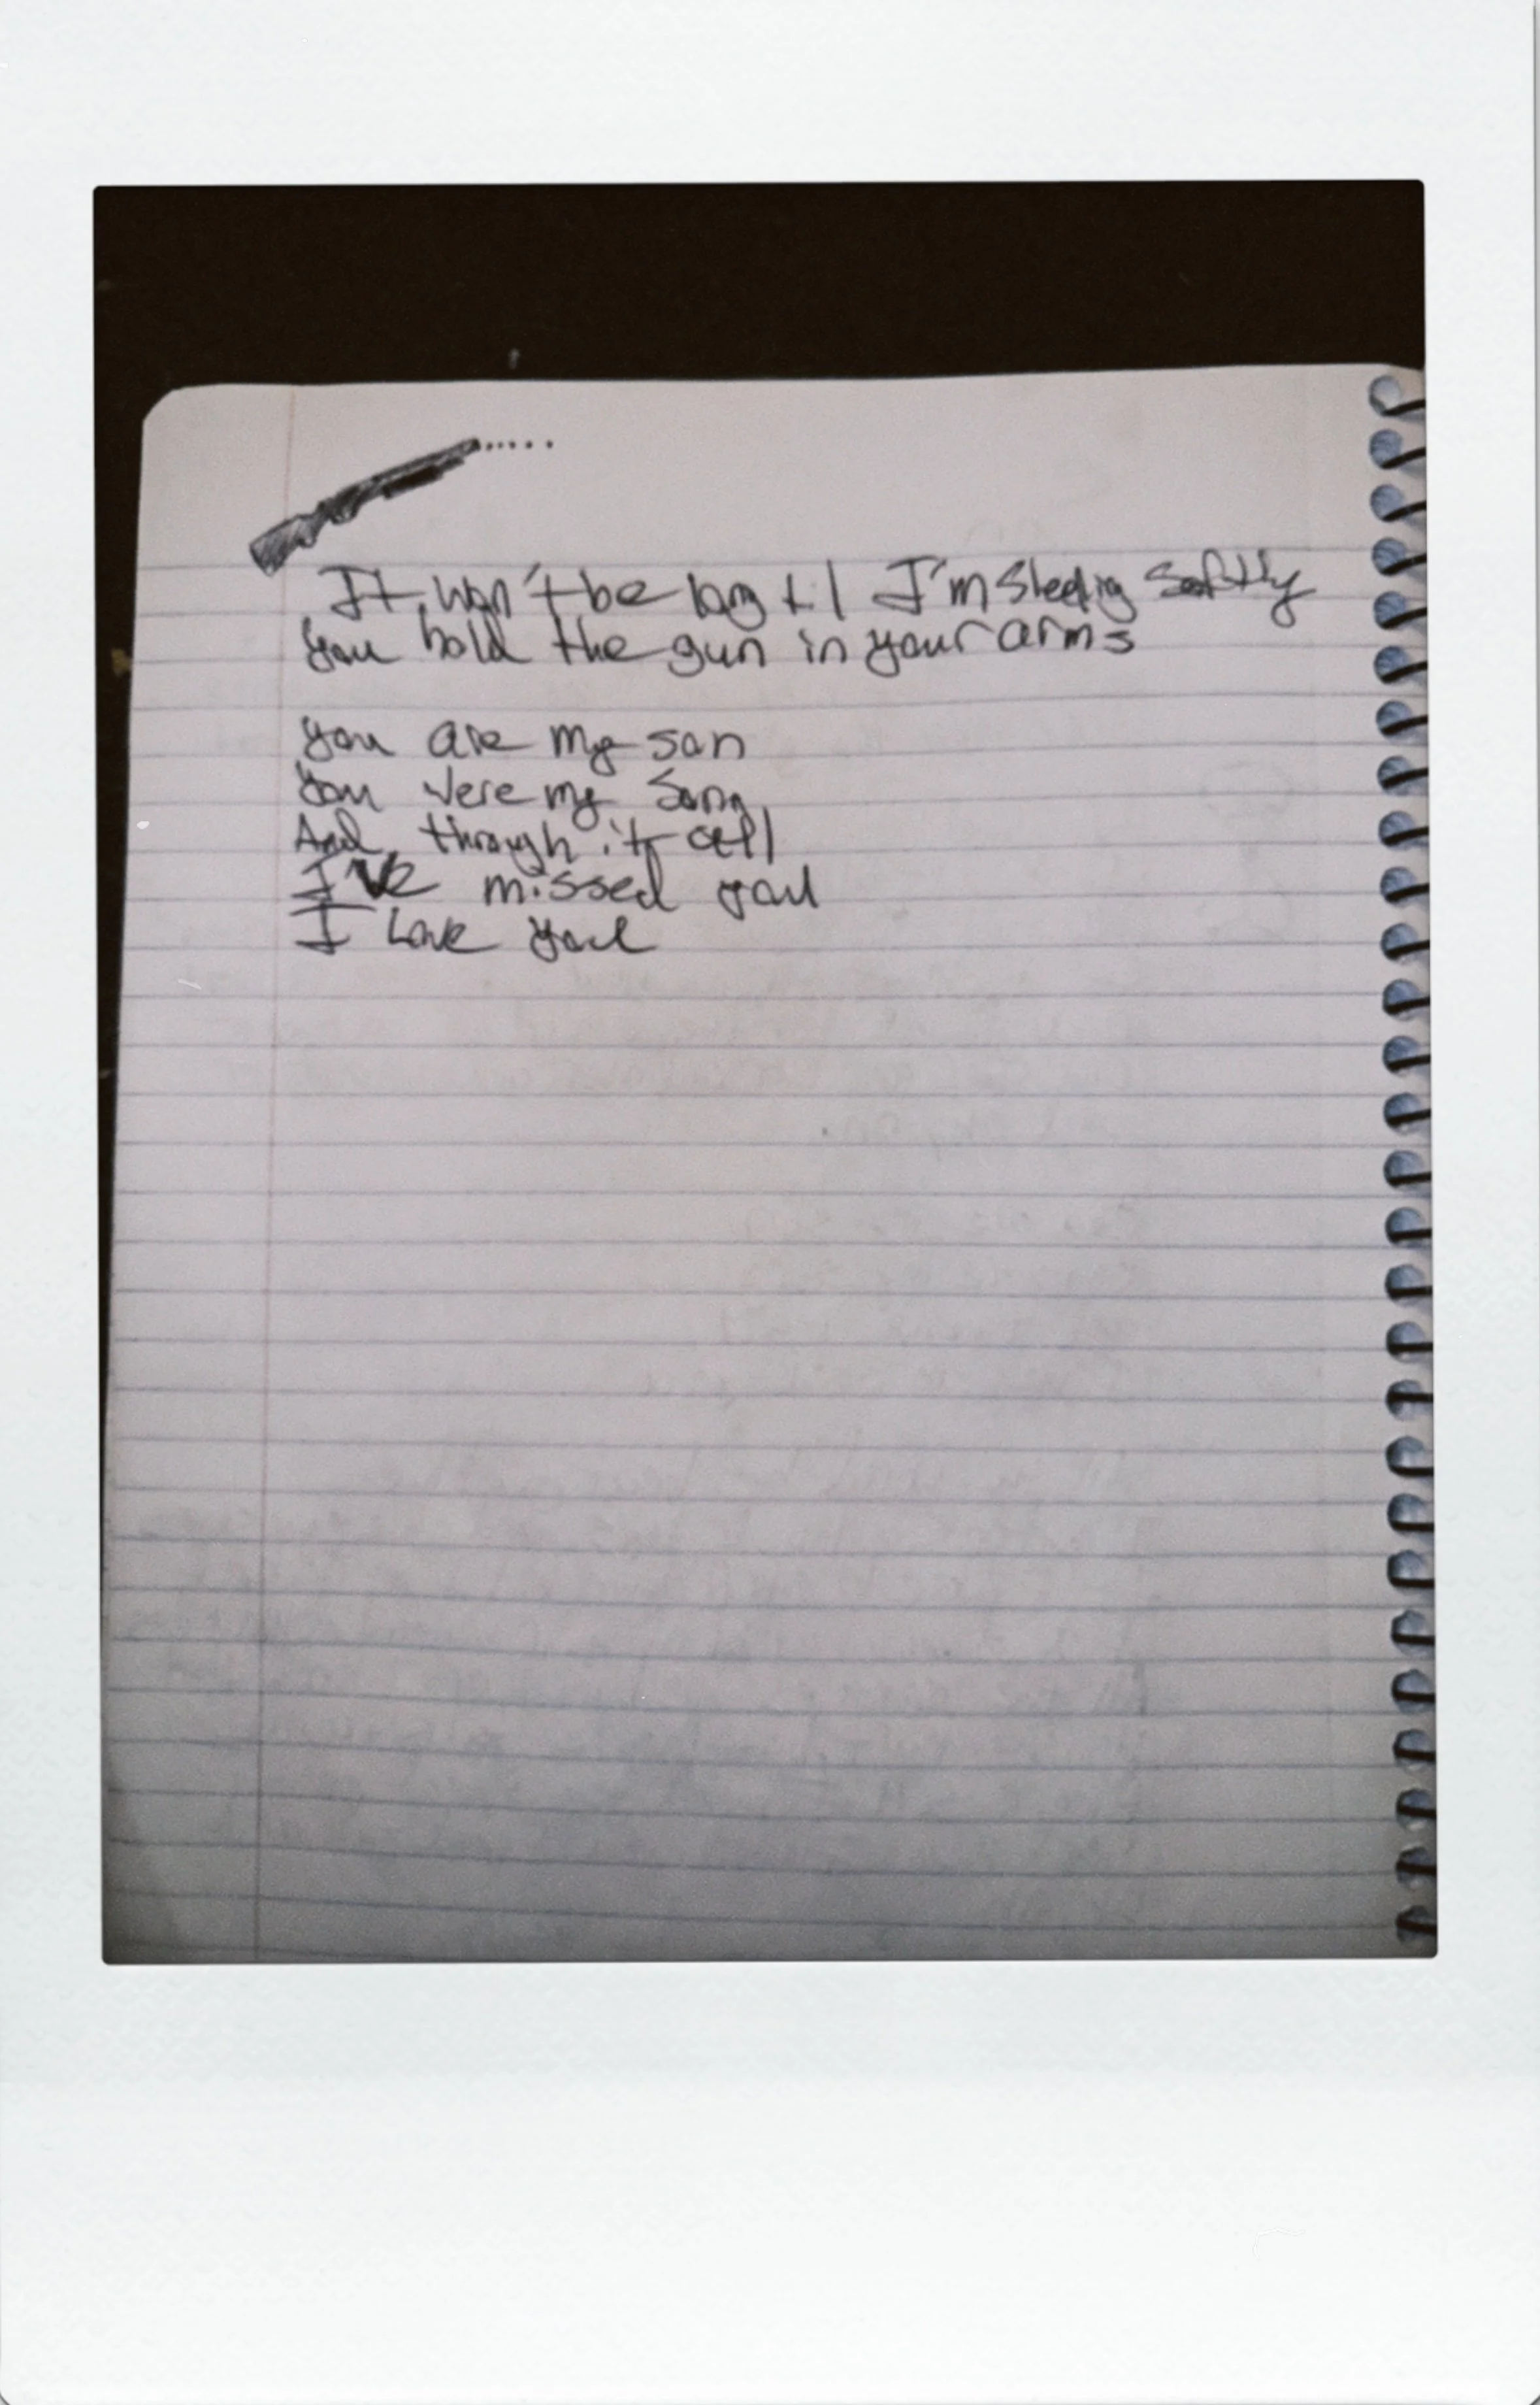 It won't be long til I'm sleeping softly
You hold the gun in your arms
You are my son
You were my song
And through it all
I've missed you
I Love you